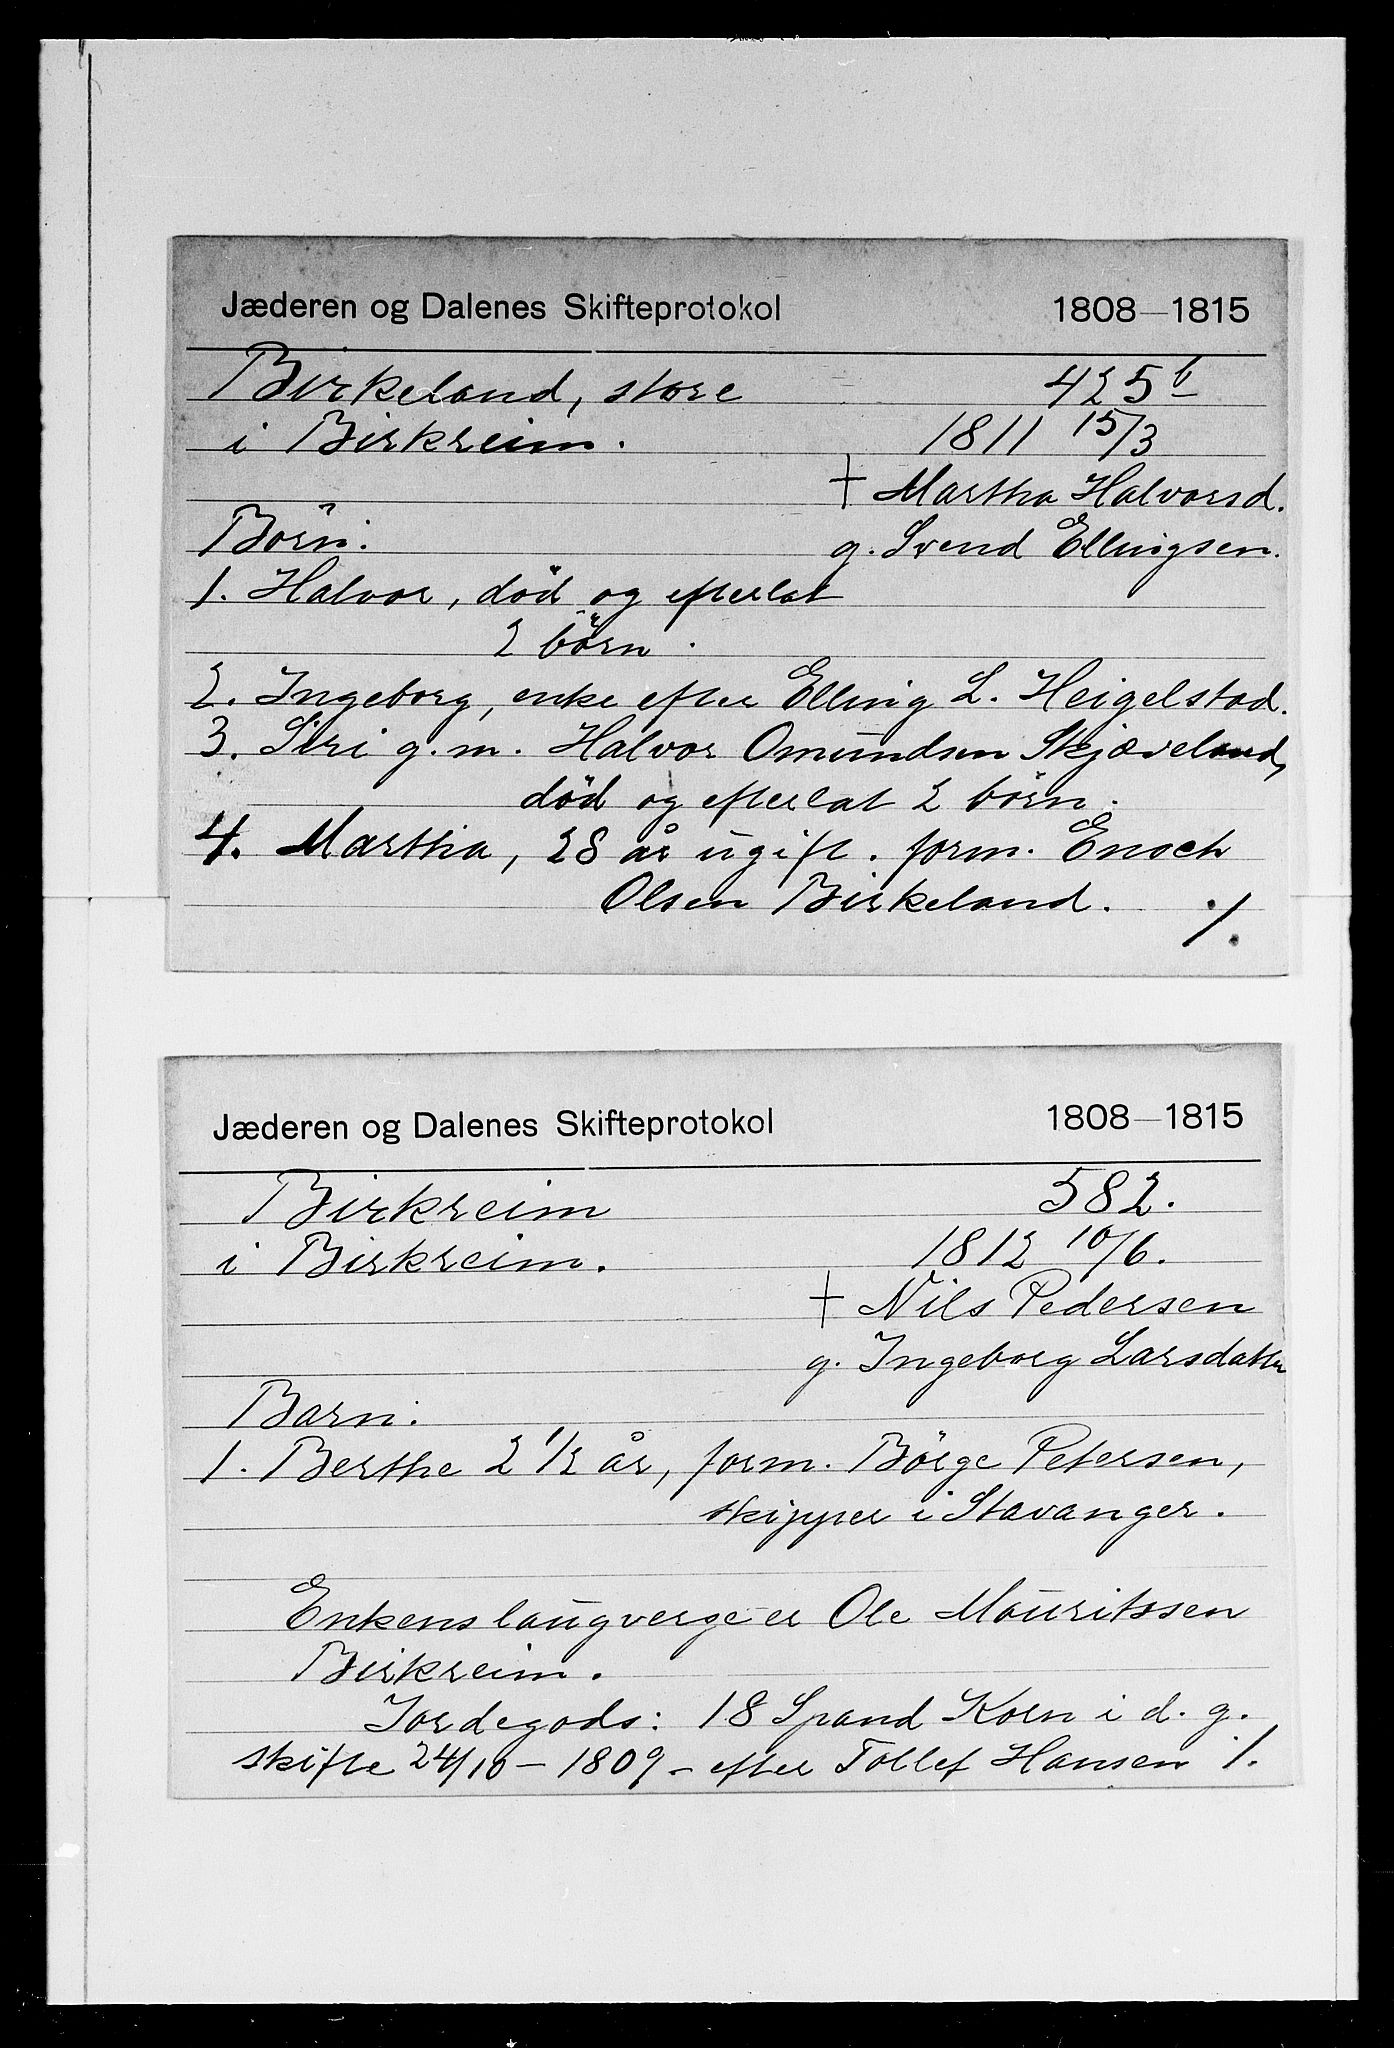 Jæderen og Dalenes Skifteprotokol 1808-1815
Birkeland, store 425b
i Birkreim. 1811 15/3
† Martha Halvorsd.
Börn: g. Svend Ellingsen.
1. Halvor, död og efterlat
2 börn.
2. Ingeborg, enke efter Elling L. Heigelstad.
3. Siri g. m. Halvor Omundsen Skjæveland,
död og efterlat 2 börn.
4. Martha, 28 år ugift. form. Enoch
Olsen Birkeland. ./.
Jæderen og Dalenes Skifteprotokol 1808-1815
Birkreim 582.
i Birkreim. 1812 10/6.
† Nils Pedersen
g. Ingeborg Larsdatter
Barn:
1. Berthe 2 1/2 år, form. Börge Petersen,
skipper i Stavanger.
Enkens laugverge er Ole Mauritssen
Birkreim.
Jordegods: 18 Spand Korn i d. g.
skifte 24/10 - 1809 - efter Tollef Hansen ./.